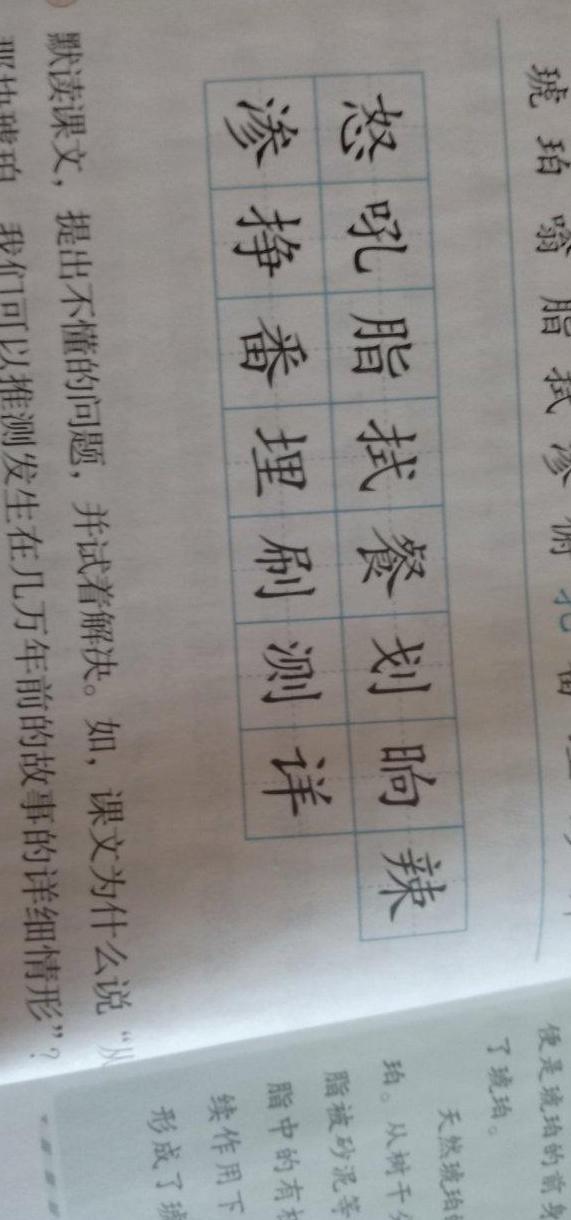 琥珀嗡脂拭渗俯扎番
怒吼脂拭餐划晌辣
渗挣番埋刷测详
默读课文，提出不懂的问题，并试着解决。如，课文为什么说“从
那块琥珀，我们可以推测发生在几万年前的故事的详细情形”？
便是琥珀的前身
了琥珀。
天然琥珀
珀。从树干
脂被砂泥等
脂中的有机
续作用下
形成了琥